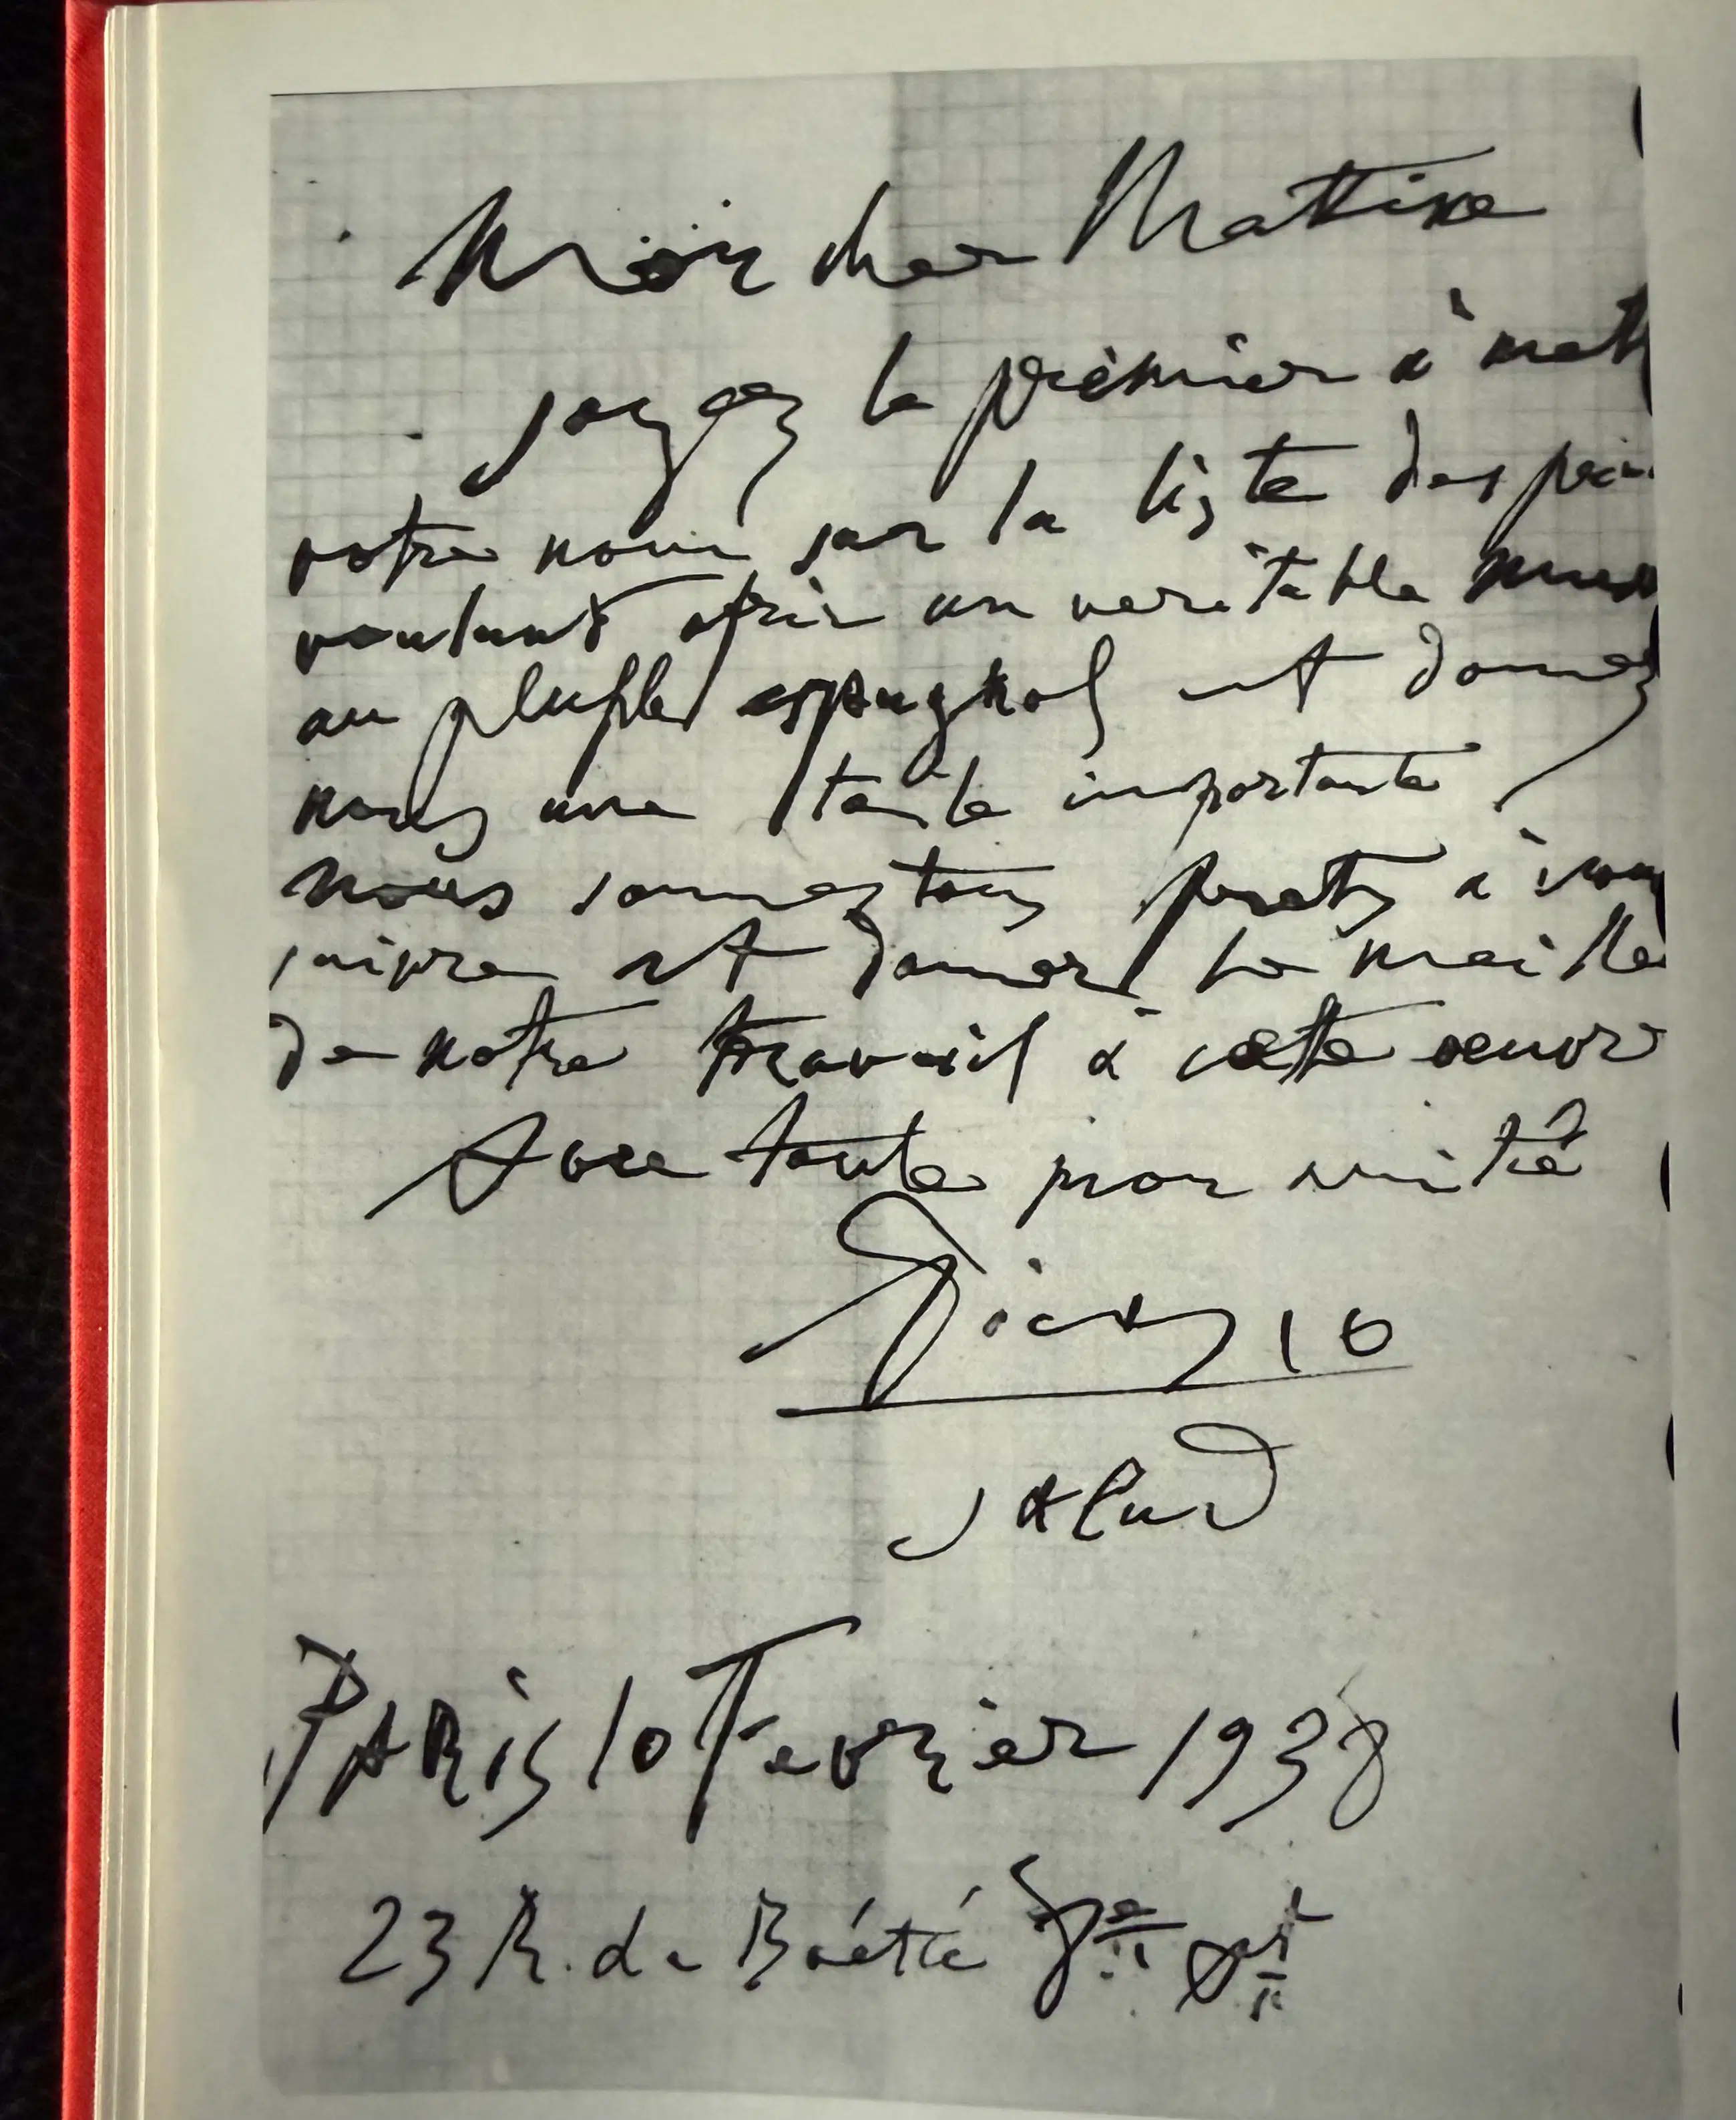 Mon cher Matisse
soyez le premier à mett
votre nom sur la liste des pein
voulant ofrir un veritable muse
au peuple espagnol et donnez
nous une toile importante
nous sommes tous prets à vous
suivre et donner le meille
de notre travail à cette oeuvr
Avec toute mon amitié
Picasso
salud
PARIS 10 Fevrier 1938
23 R. de Boétié 8e